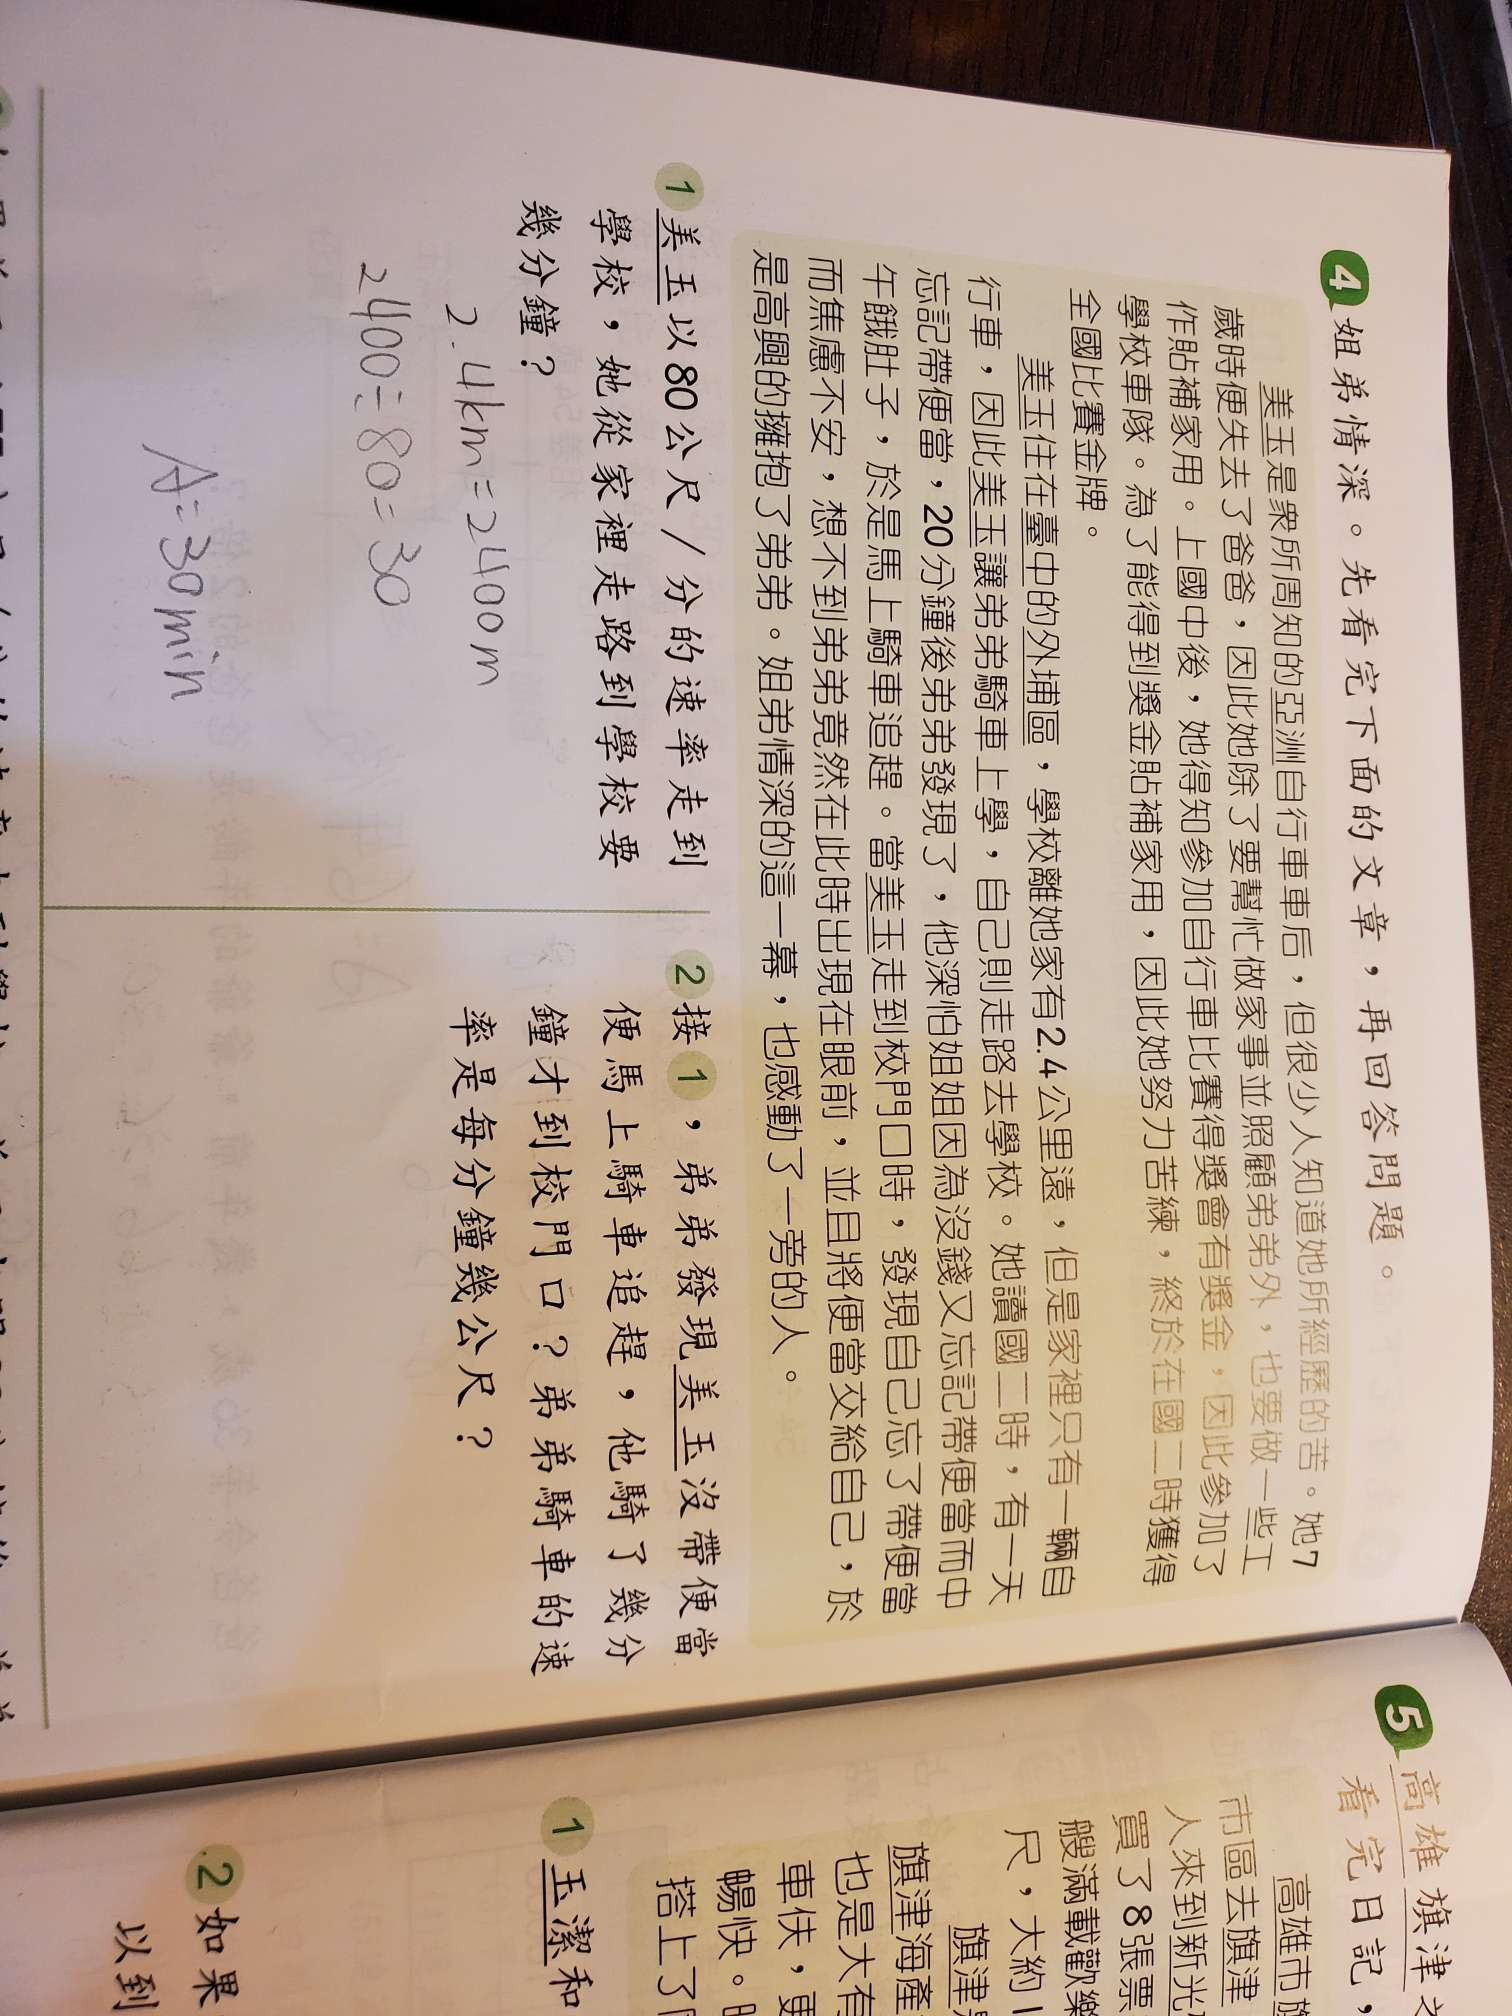 4 姐弟情深。先看完下面的文章，再回答問題。
美玉是眾所周知的亞洲自行車車后，但很少人知道她所經歷的苦。她7
歲時便失去了爸爸，因此她除了要幫忙做家事並照顧弟弟外，也要做一些工
作貼補家用。上國中後，她得知參加自行車比賽得獎會有獎金，因此參加了
學校車隊。為了能得到獎金貼補家用，因此她努力苦練，終於在國二時獲得
全國比賽金牌。
美玉住在臺中的外埔區，學校離她家有2.4公里遠，但是家裡只有一輛自
行車，因此美玉讓弟弟騎車上學，自己則走路去學校。她讀國二時，有一天
忘記帶便當，20分鐘後弟弟發現了，他深怕姐姐因為沒錢又忘記帶便當而中
午餓肚子，於是馬上騎車追趕。當美玉走到校門口時，發現自己忘了帶便當
而焦慮不安，想不到弟弟竟然在此時出現在眼前，並且將便當交給自己，於
是高興的擁抱了弟弟。姐弟情深的這一幕，也感動了一旁的人。
1 美玉以80公尺/分的速率走到
學校，她從家裡走路到學校要
幾分鐘？
2.4km=2400m
2400÷80=30
A=30min
2 接1，弟弟發現美玉沒帶便當
便馬上騎車追趕，他騎了幾分
鐘才到校門口？弟弟騎車的速
率是每分鐘幾公尺？
5 高雄旗津
看完日記，
高雄市旗
市區去旗津
人來到新光
買了8張票
艘滿載歡樂
尺，大約1
旗津
旗津海產
也是大有
車伕，更
暢快。
搭上了
1 玉潔和
2 如果
以到